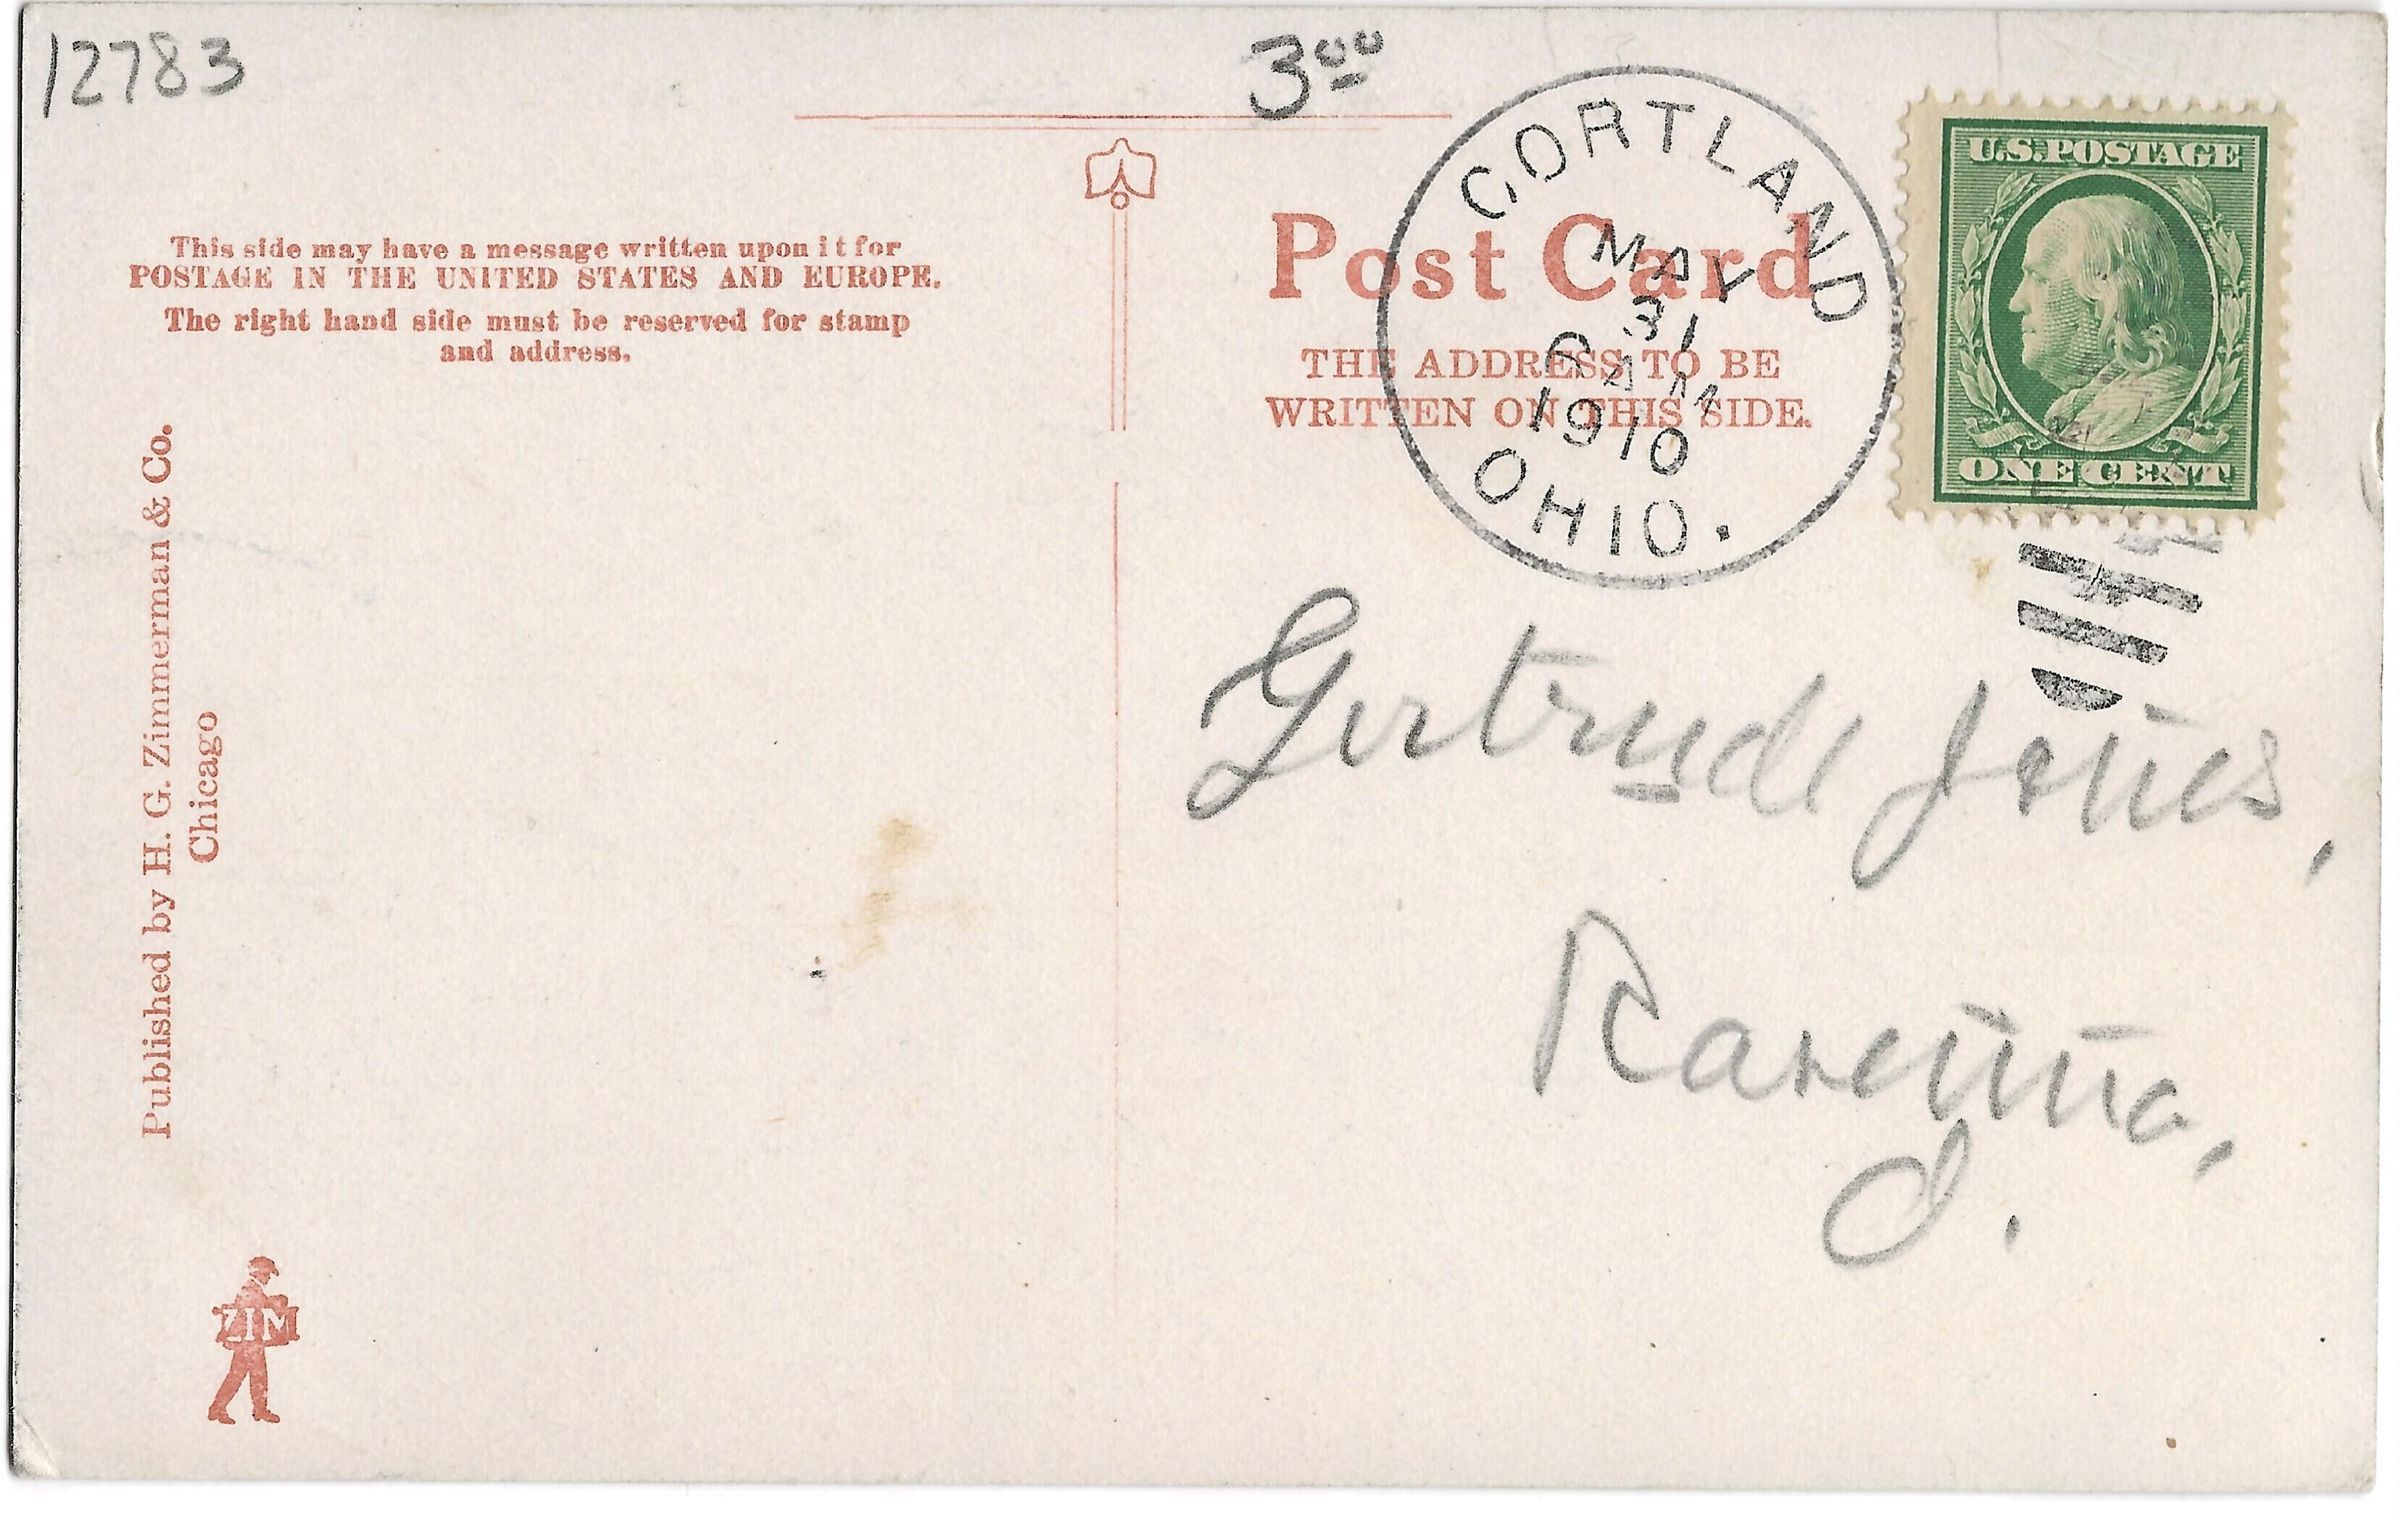 12783
3⁰⁰
This side may have a message written upon it for
POSTAGE IN THE UNITED STATES AND EUROPE.
The right hand side must be reserved for stamp
and address.
Published by H. G. Zimmerman & Co.
Chicago
ZIM
Post Card
THE ADDRESS TO BE
WRITTEN ON THIS SIDE.
CORTLAND
MAY
31
AM
1910
OHIO.
U.S. POSTAGE
ONE CENT
Gertrude Jones,
Ravenna,
O.